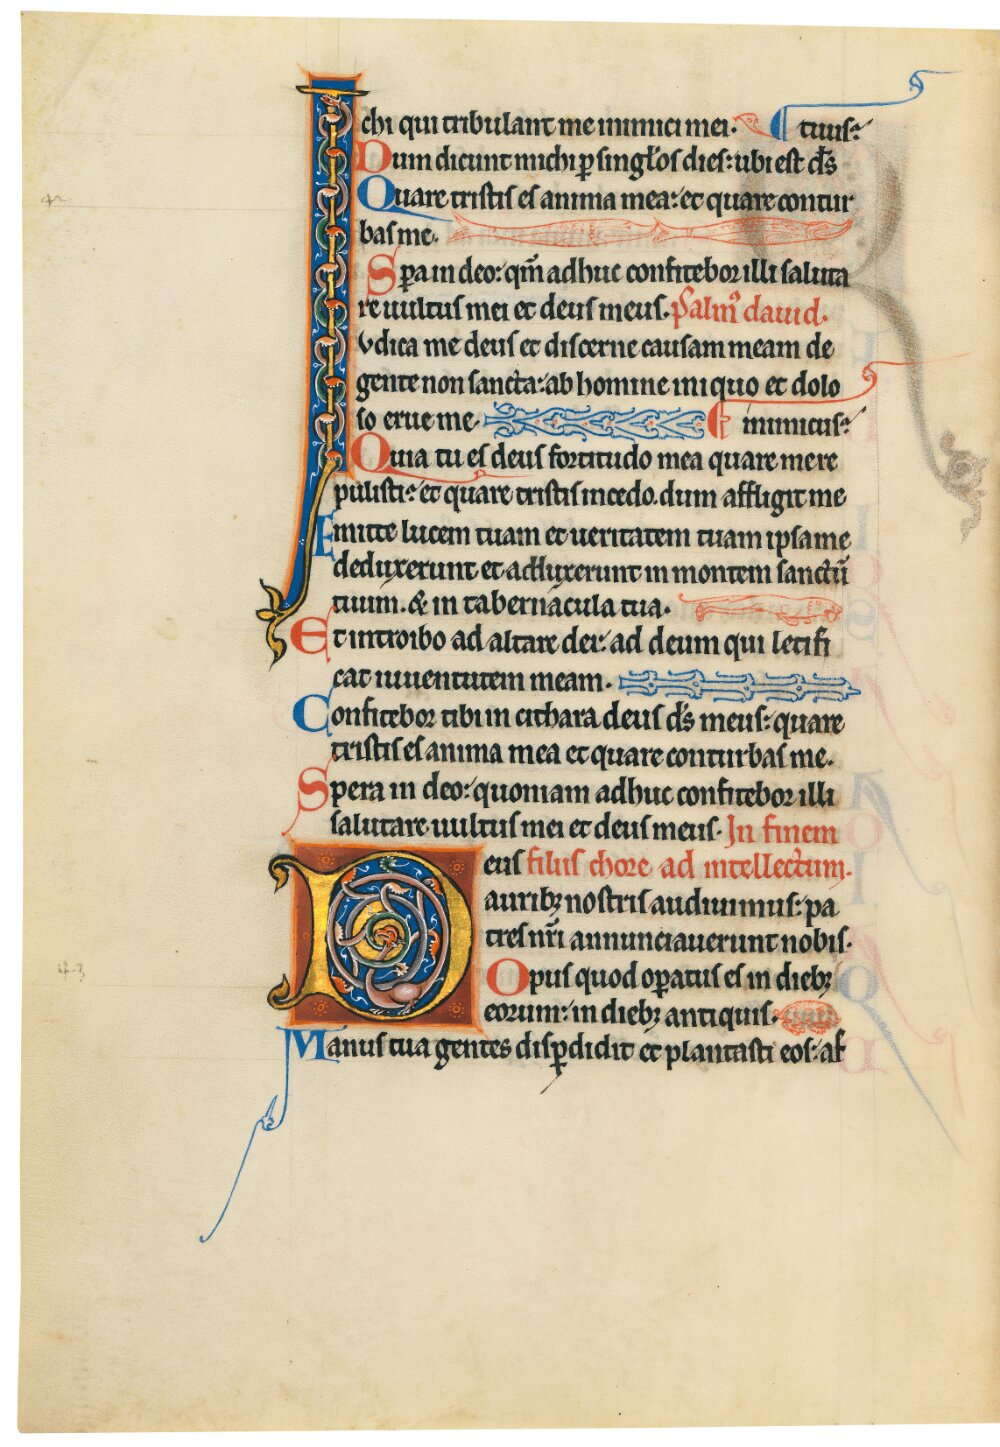 chi qui tribulant me inimici mei. tuus:
Dum dicunt michi p̱ singłos dies: ubi est d̄s
Quare tristis es anima mea: et quare contur
bas me.
Sp̱a in deo: qm̄ adhuc confitebor illi saluta
re uultus mei et deus meus. psalm᷒ dauid.
Iudica me deus et discerne causam meam de
gente non sancta: ab homine iniquo et dolo
so erue me. inimicus:
Quia tu es deus fortitudo mea quare me re
pulisti: et quare tristis incedo. dum affligit me
Emitte lucem tuam et ueritatem tuam ipsa me
deduxerunt et adduxerunt in montem sanctū
tuum. & in tabernacula tua.
Et introibo ad altare dei: ad deum qui letifi
cat iuuentutem meam.
Confitebor tibi in cithara deus d̄s meus: quare
tristis es anima mea et quare conturbas me.
Spera in deo: quoniam adhuc confitebor illi
salutare uultus mei et deus meus. In finem
Deus filius chore ad intellectum.
auribꝫ nostris audiuimus: pa
tres nr̄i annunciauerunt nobis.
Opus quod op̱atus es in diebꝫ
eorum: in diebꝫ antiquis.
Manus tua gentes disp̱didit et plantasti eos: af